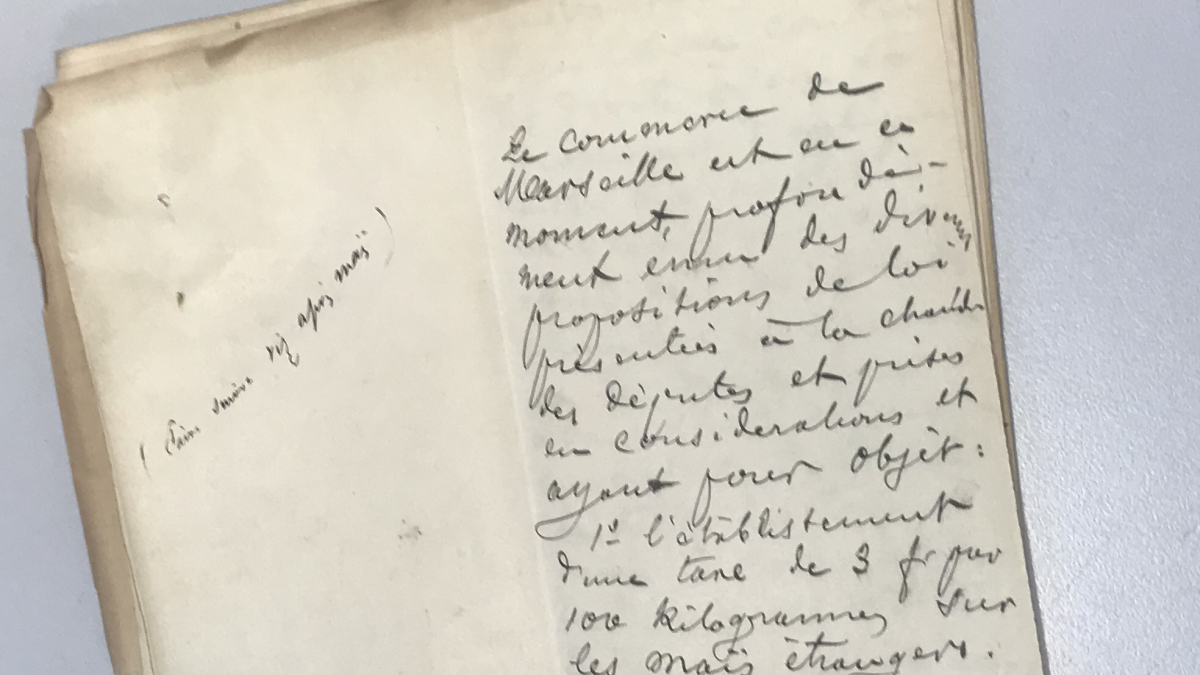 (Faire suivre riz après maïs)
Le commerce de
Marseille est en ce
moment, profondé-
ment ému des diverses
propositions de loi
présentées à la chambre
des députés et prises
en considérations et
ayant pour objèt :
1º l'établissement
d'une taxe de 3 fr par
100 kilogrammes sur
les maïs étrangers.